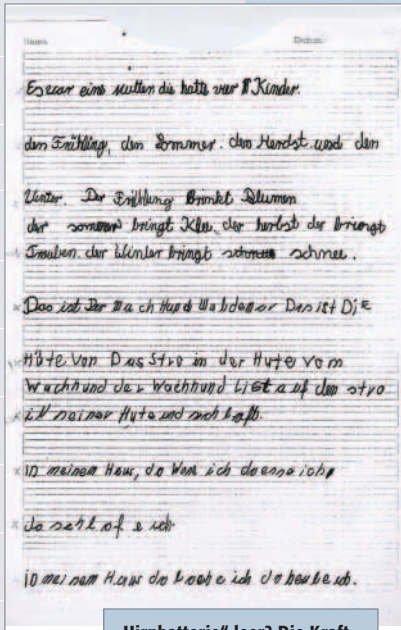 Name
Datum
Es war eine mutter die hatte vier Kinder.
den Frühling, den Sommer. den Herdst und den
Winter. Der Frühlung Brinkt Blumen
der sommer bringt Klee, der herbst der briengt
Trauben. der Winter bringt schnee.
Das ist Der Wach Hund Waldemar Das ist DiE
Hüte Von Das Stro in der Hute vom
Wachhund der Wachhund List auf den stro
in seiner Hyte und
in meinem Haus, da Wone ich da esse ich,
da schlofe ich
in meinem Haus da koche ich da
Hirnbatterie" leer? Die Kraft